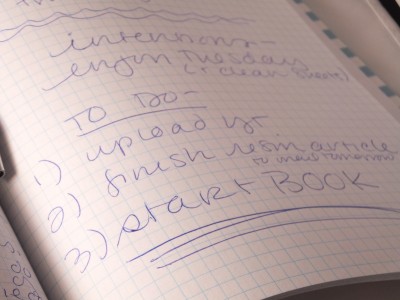 intentions -
enjoy Tuesday
(+ clean sheets)
TO DO -
1) upload yt.
2) finish resin article
to mail tomorrow
3) start BOOK